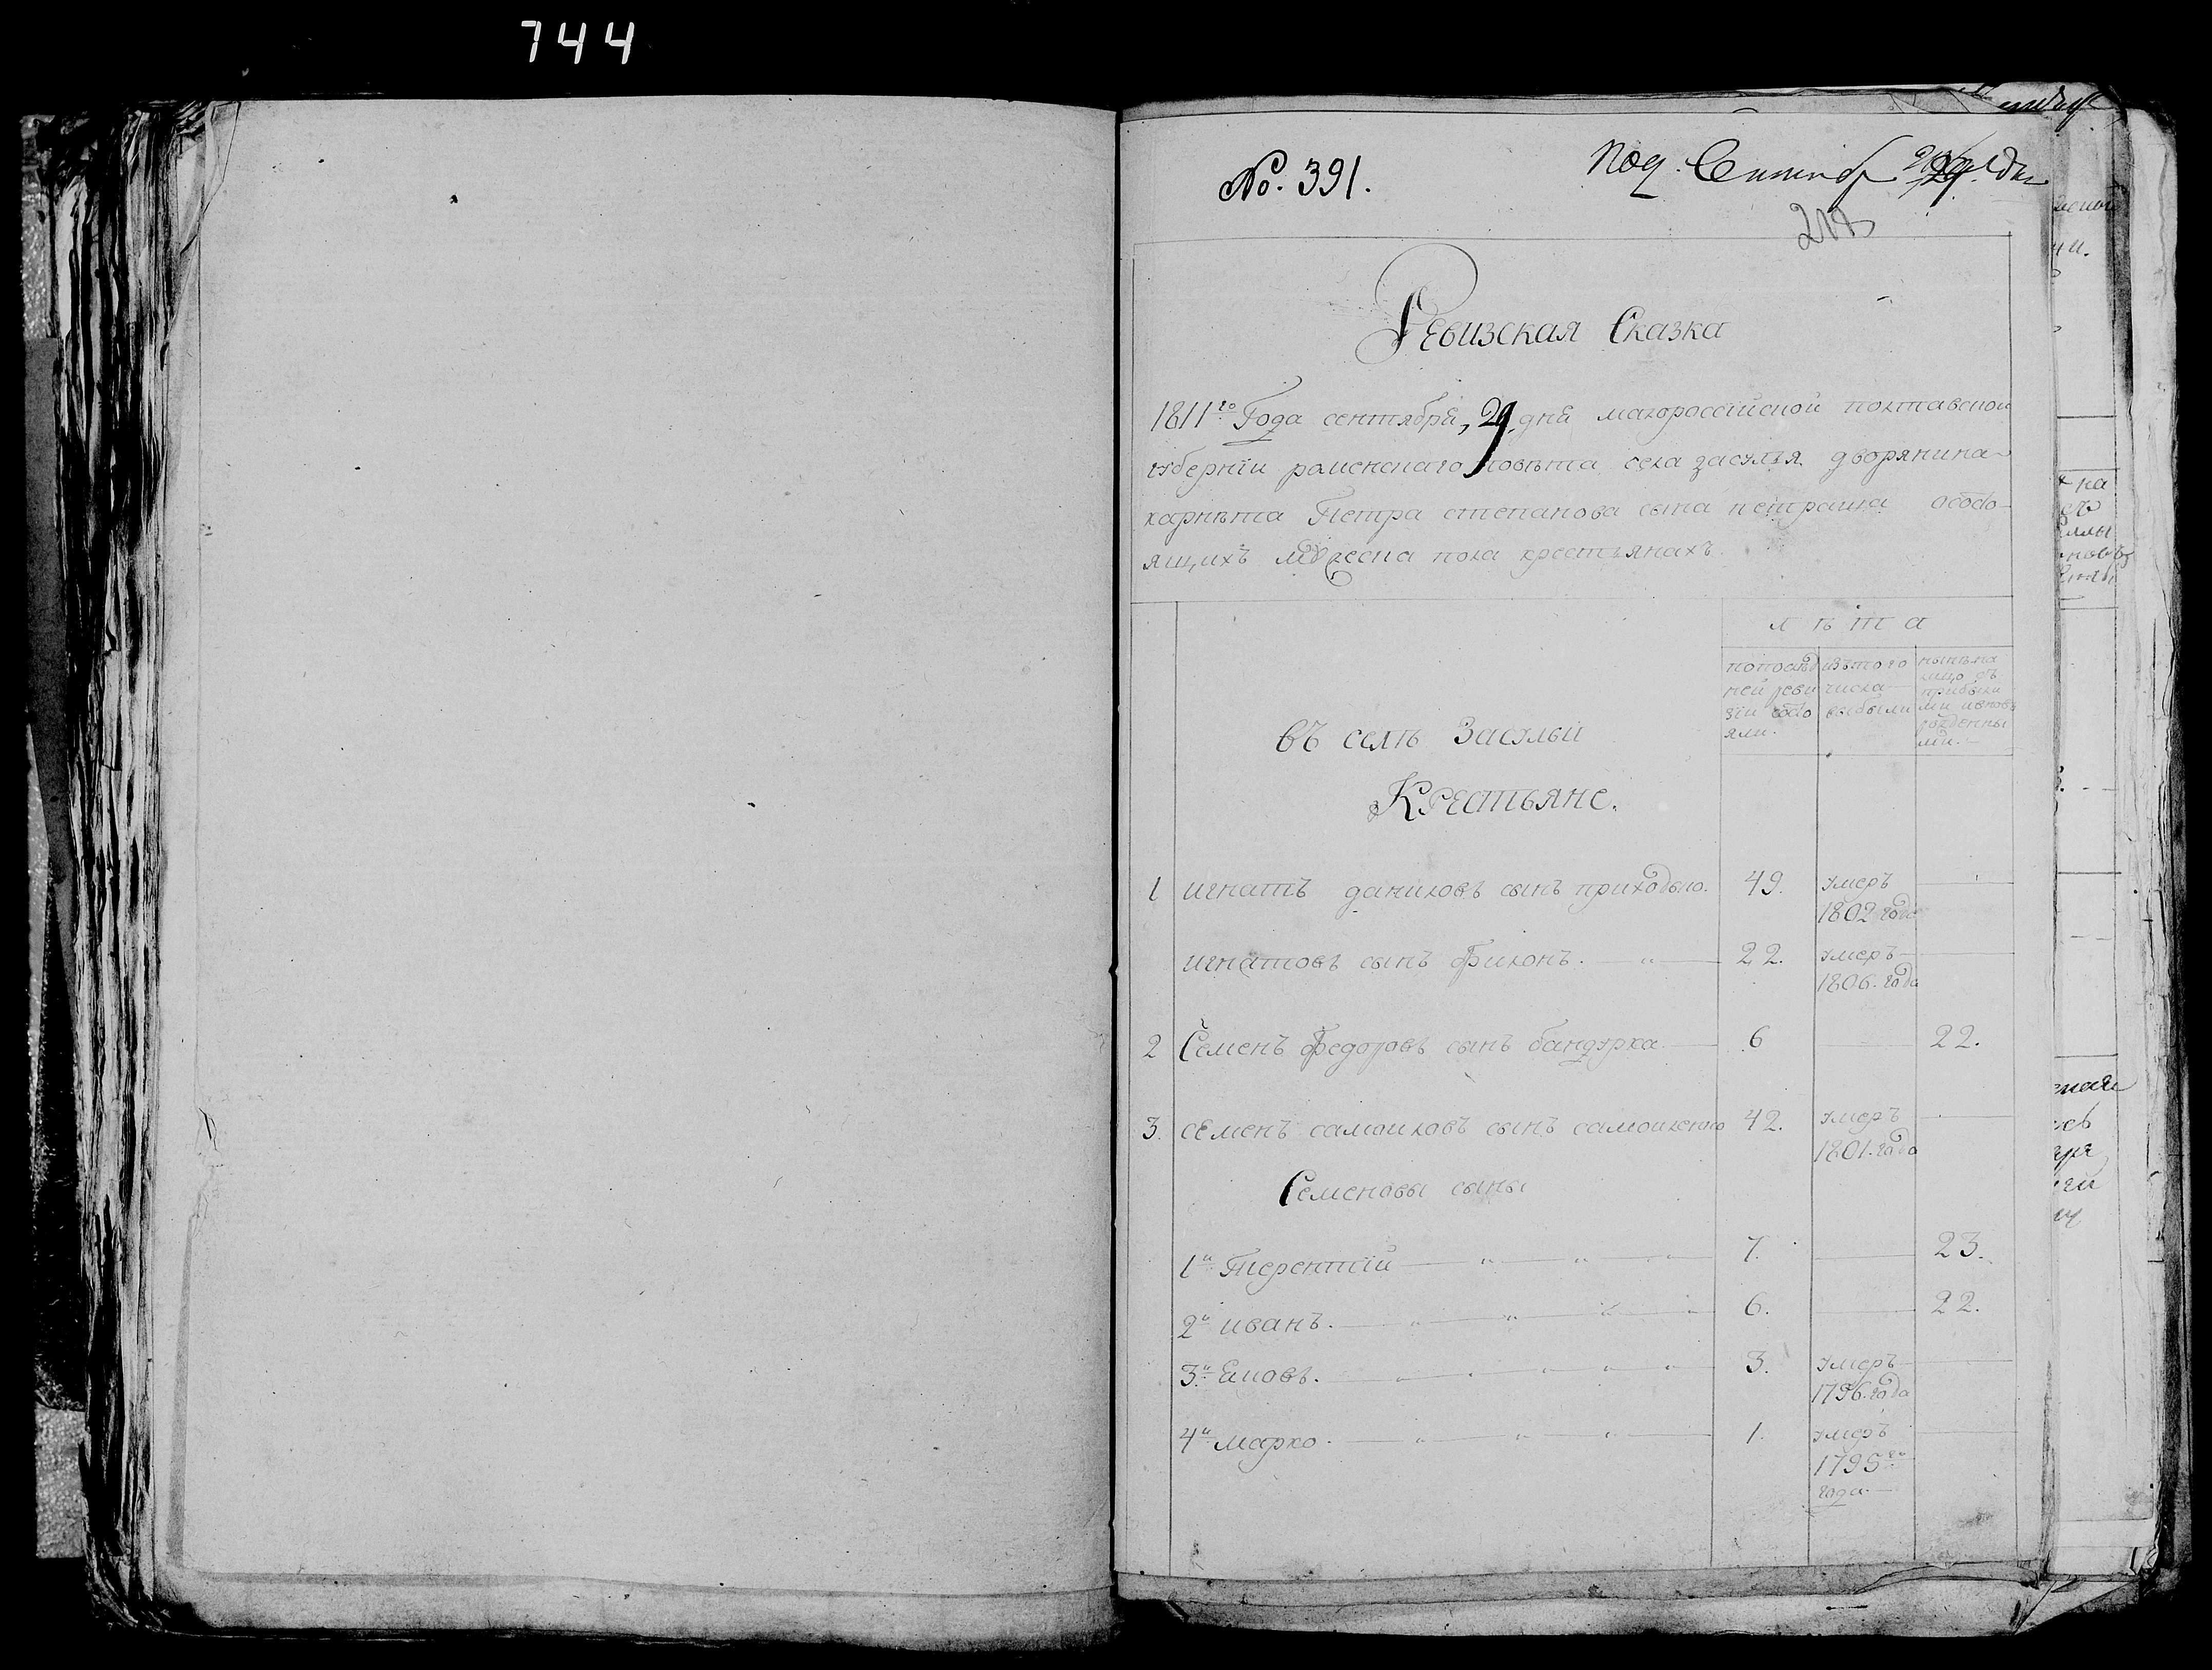 744
No. 391.
Под. Сентяб
Ревизская Сказка
1811го Года сентября, 29 дня малороссійской полтавской
губерніи роменского повѣта села засулья дворянина
карнѣта Петра степанова сына петраша осо҃сто-
ящихъ мужеска пола крестьянахъ.
лѣта
по послѣд
ней реви
зіи состо
яли.
изътого
числа
выбыли
нынѣ на
лицо съ
прибылы
ми и новъ
рожденны
ми.
въ селѣ Засульи
Крестьяне.
1 игнатъ даниловъ сынъ приходько. 49. умеръ
1802 года
игнатовъ сынъ филонъ. 22. умеръ
1806. года
2 Семенъ федоровъ сынъ бандурка 6 22.
3. семенъ самоиловъ сынъ самоиленко 42. умеръ
1801. года
Семеновы сыны
1й Терентій 7. 23.
2й иванъ. 6. 22.
3й 3. умеръ
1796. года
4й марко. 1. умеръ
1795го
года.